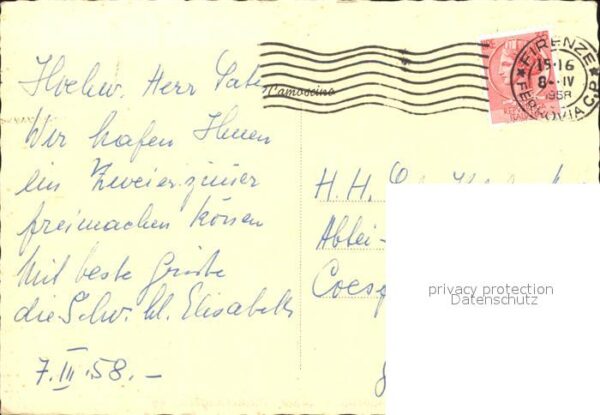 Hochw. Herr Pater
Wir haben Ihnen
ein Zweierzimer
freimachen können
Mit beste Grüsse
die Schw. hl. Elisabeth
7.III.58.-
Camoscina
FIRENZE
15-16
8-IV
1958
FERROVIA C.P.
H. H.
Abtei-
Coesf
privacy protection
Datenschutz